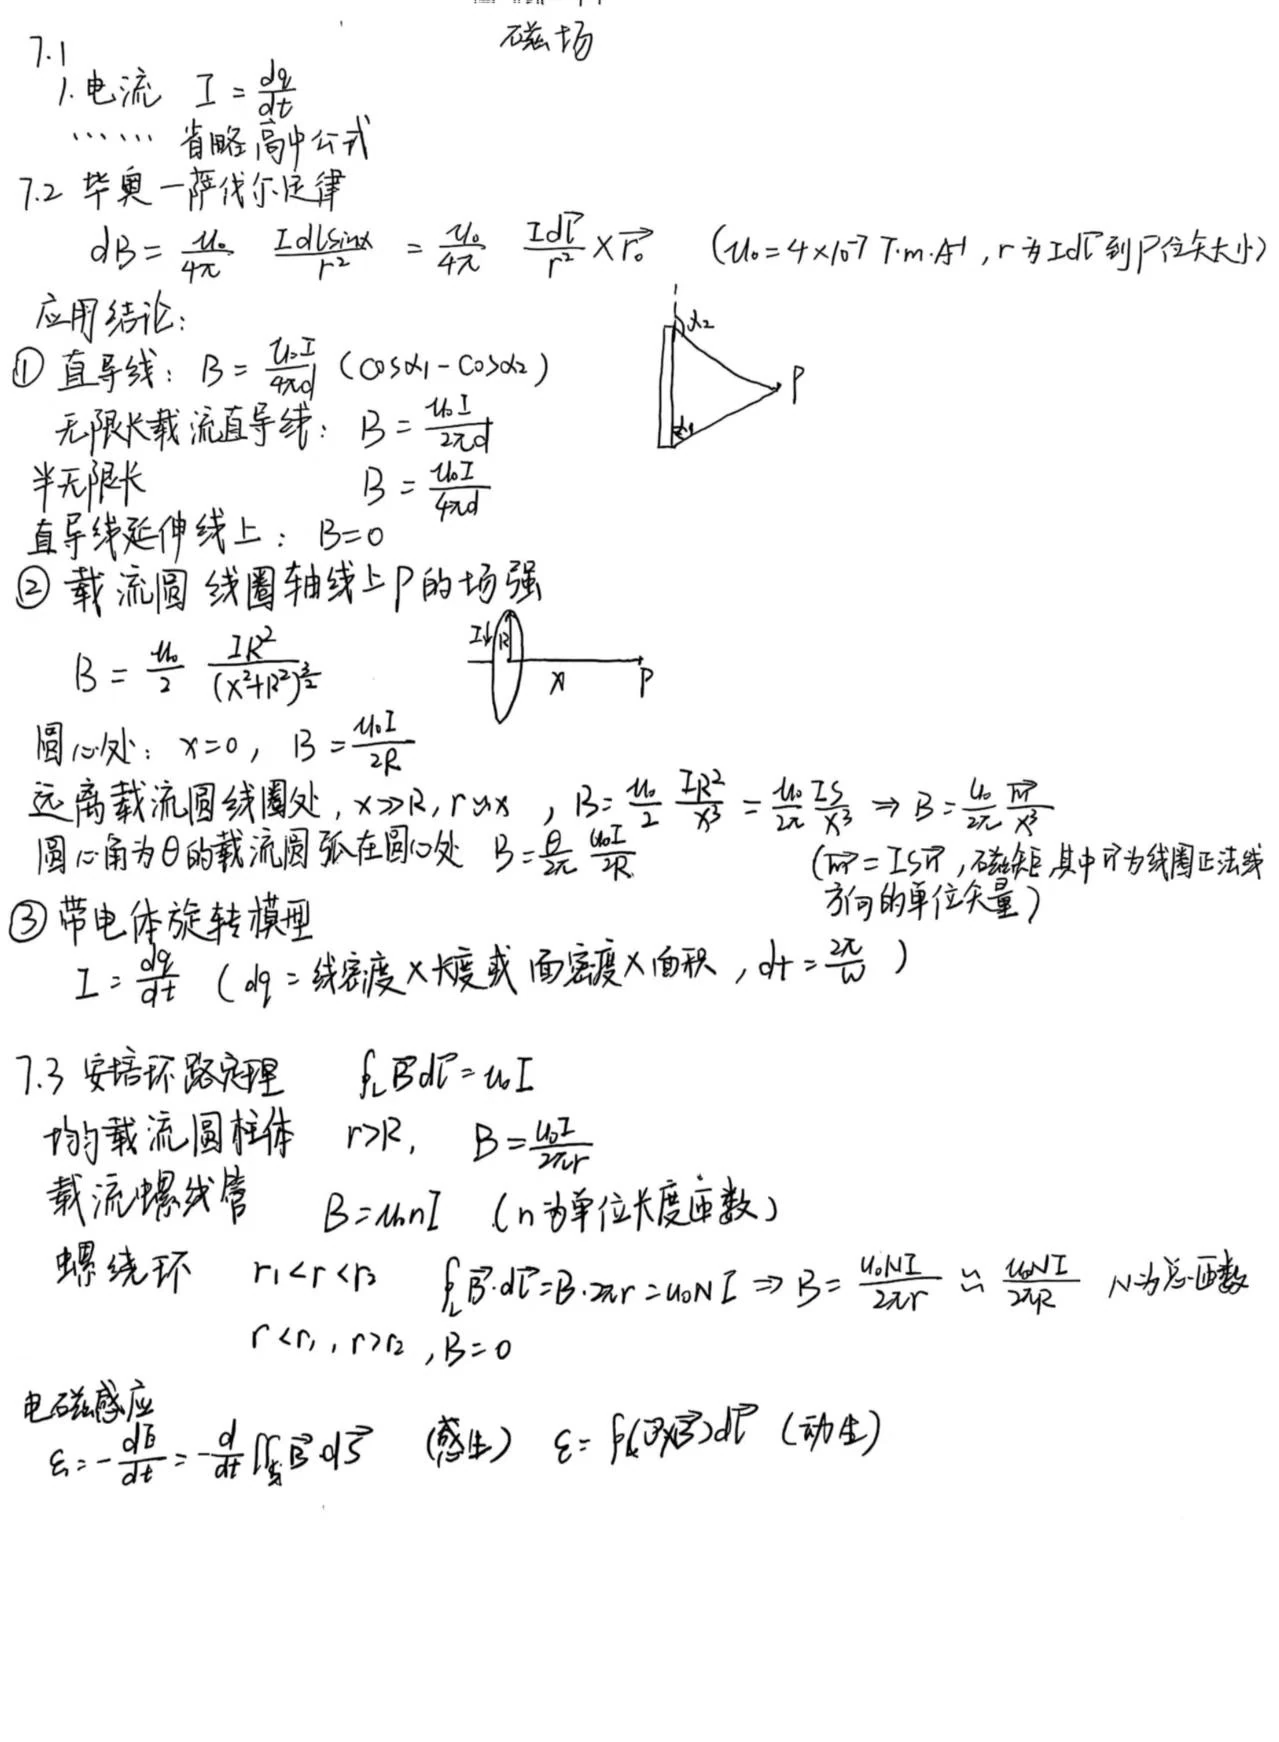 磁场
7.1
1. 电流 I = dq/dt
…… 省略高中公式
7.2 毕奥一萨伐尔定律
dB = u₀/4π Idlsinα/r² = u₀/4π Idl⃗/r² × r⃗₀ (u₀ = 4×10⁻⁷ T·m·A⁻¹, r为Idl⃗到P位矢大小)
应用结论:
① 直导线: B = u₀I/4πd (cosα₁ - cosα₂)
α₂
P
α₁
无限长载流直导线: B = u₀I/2πd
半无限长 B = u₀I/4πd
直导线延伸线上: B=0
② 载流圆线圈轴线上P的场强
B = u₀/2 IR²/(x²+R²)^(3/2)
I R x P
圆心处: x=0, B = u₀I/2R
远离载流圆线圈处, x≫R, r≈x, B = u₀/2 IR²/x³ = u₀/2π IS/x³ ⇒ B = u₀/2π m⃗/x³
圆心角为θ的载流圆弧在圆心处 B = θ/2π u₀I/2R
(m⃗ = ISn⃗, 磁矩, 其中n⃗为线圈正法线
方向的单位矢量)
③ 带电体旋转模型
I = dq/dt (dq = 线密度×长度或面密度×面积, dt = 2π/ω)
7.3 安培环路定理 ∮_L B⃗dl⃗ = u₀I
均匀载流圆柱体 r>R, B = u₀I/2πr
载流螺线管 B = u₀nI (n为单位长度匝数)
螺绕环 r₁<r<r₂ ∮_L B⃗·dl⃗ = B·2πr = u₀NI ⇒ B = u₀NI/2πr ≈ u₀NI/2πR N为总匝数
r<r₁, r>r₂, B=0
电磁感应
εᵢ = -dΦ/dt = -d/dt ∬_S B⃗·dS⃗ (感生) ε = ∮_L(v⃗×B⃗)dl⃗ (动生)